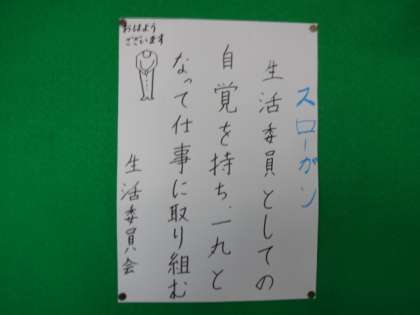 スローガン
生活委員としての
自覚を持ち、一丸と
なって仕事に取り組む
生活委員会
おはよう
ございます